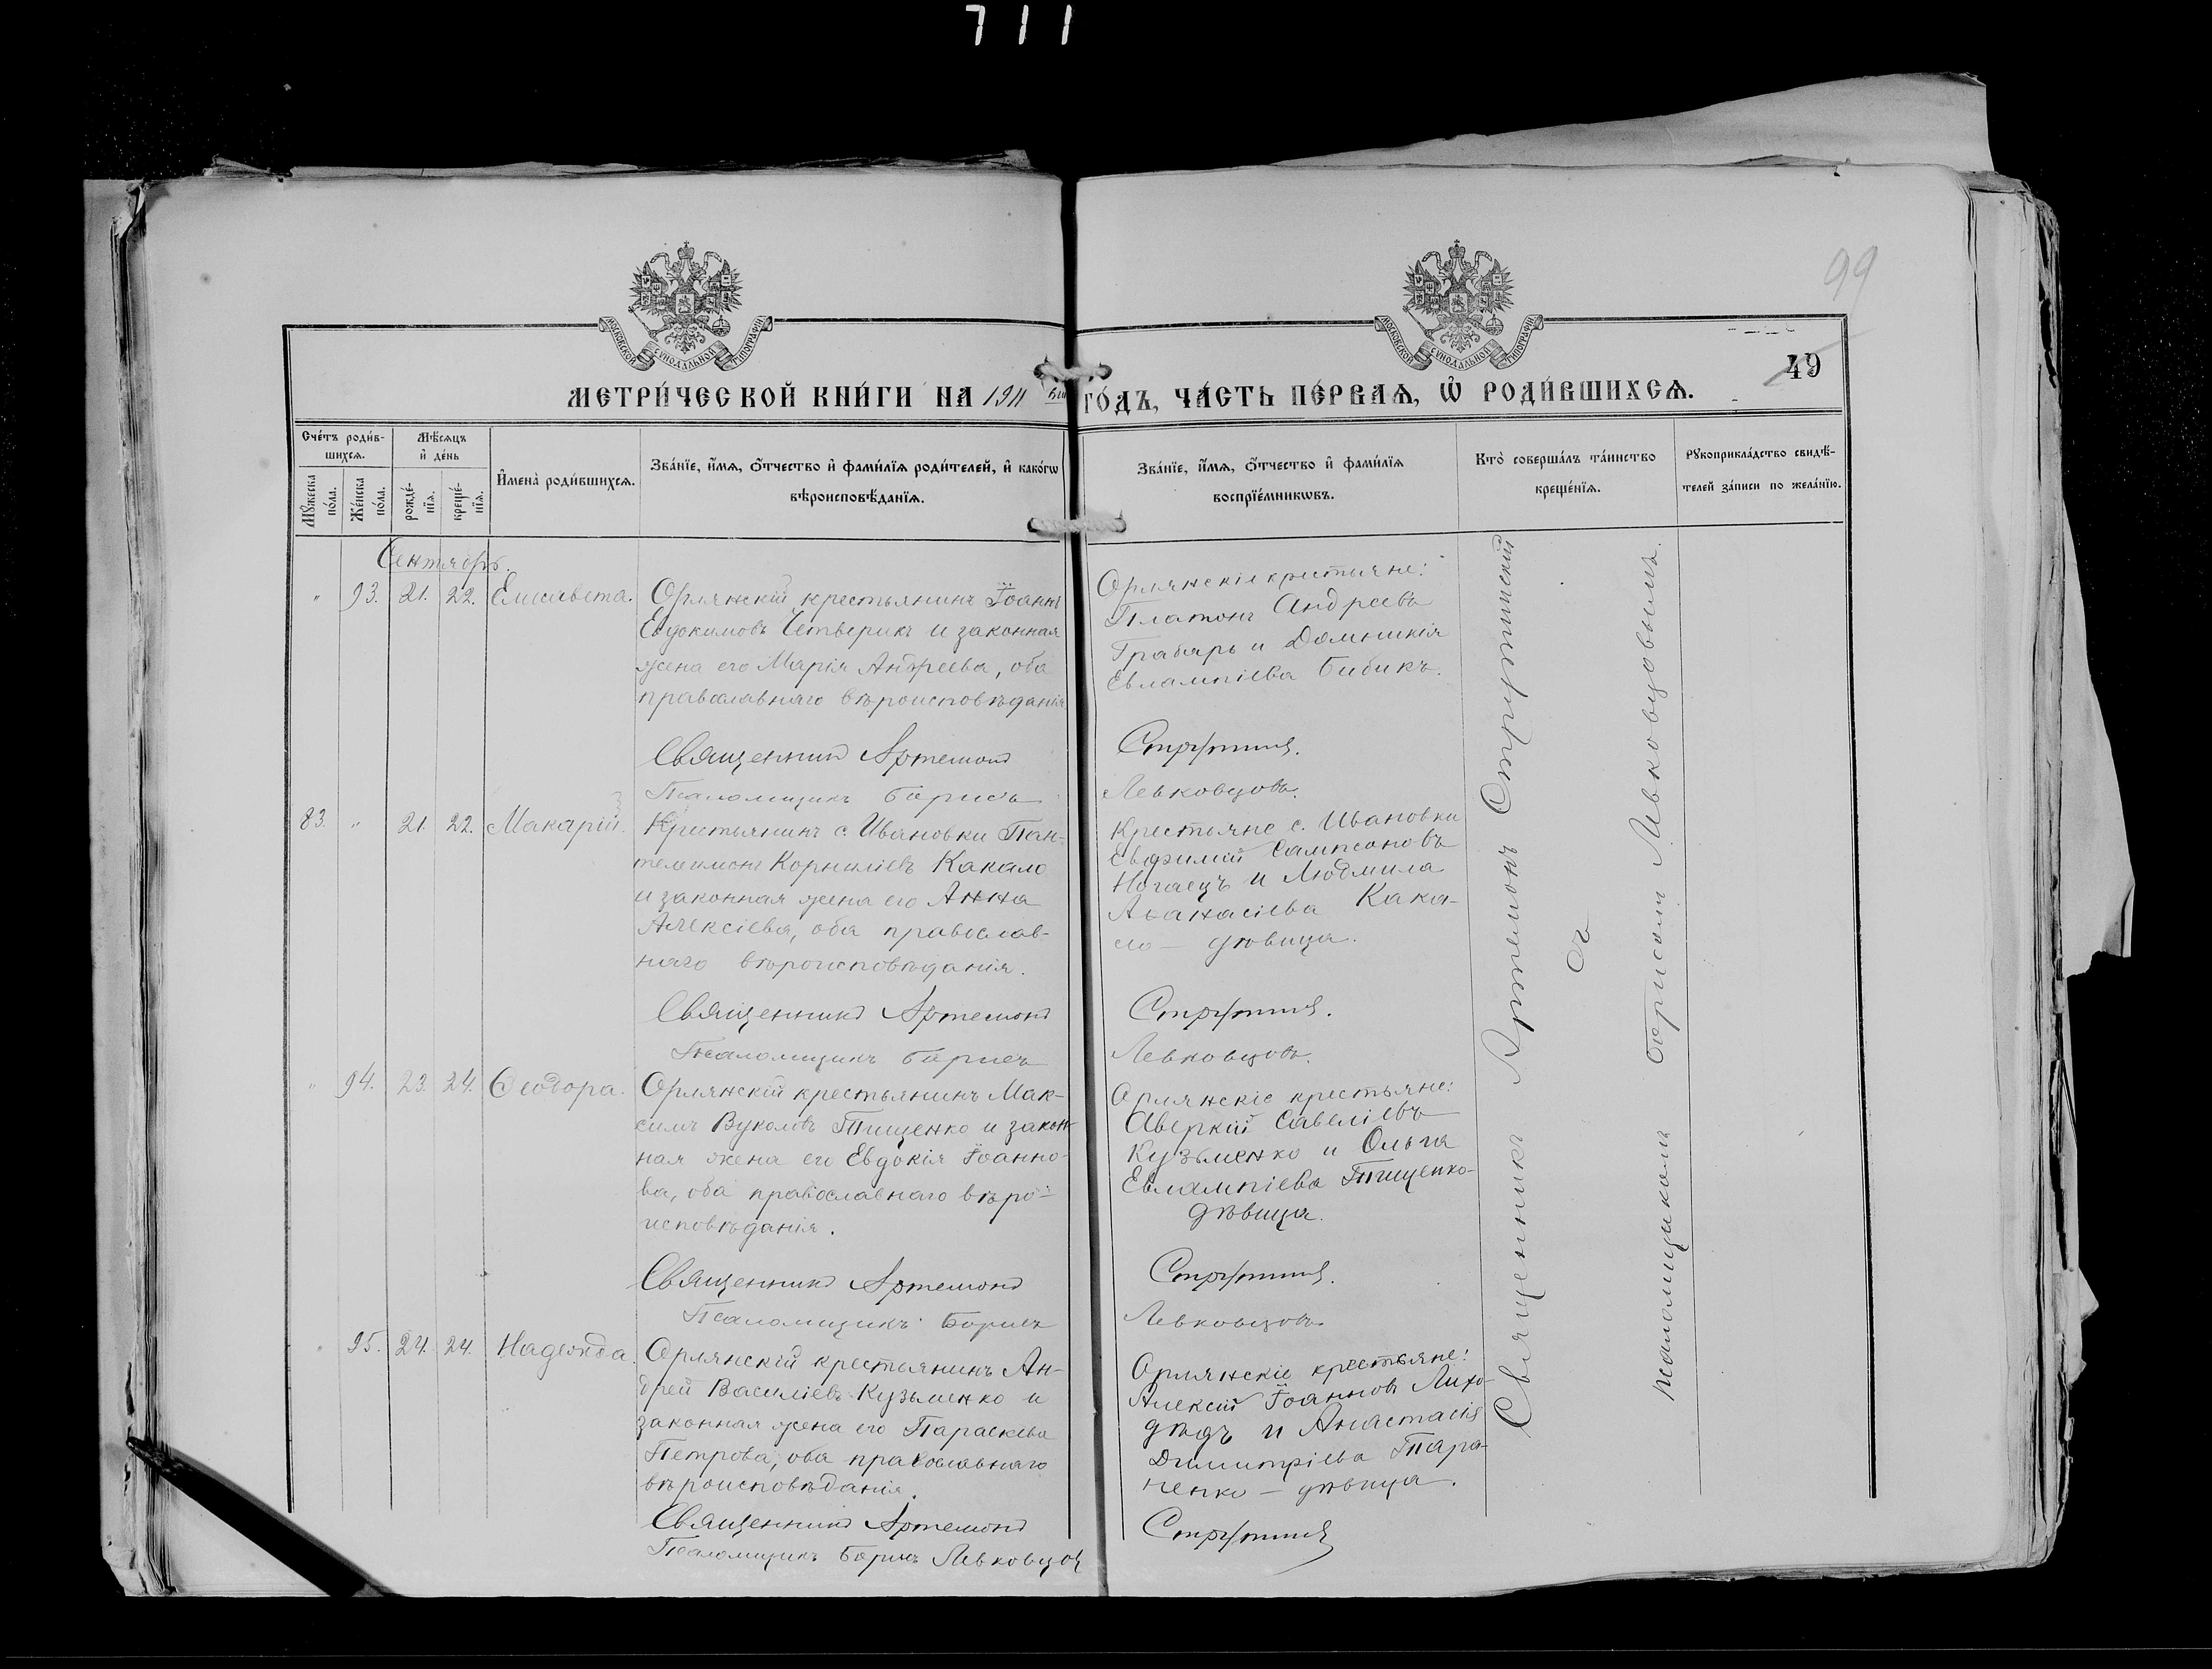 711
99
МОСКОВСКОЙ СѴНОДАЛЬНОЙ ТИПОГРАФІИ
МОСКОВСКОЙ СѴНОДАЛЬНОЙ ТИПОГРАФІИ
49
МЕТРИ́ЧЕСКОЙ КНИ́ГИ НА 1911 ГО́ДЪ, ЧА́СТЬ ПЕ́РВАѦ, Ѽ РОДИ́ВШИХСѦ.
Сче́тъ роди́в-
шихсѧ.
Мꙋ́жеска по́ла.
Же́нска по́ла.
Мѣ́сѧцъ и҆ де́нь
рожде́-нїѧ.
креще́-нїѧ.
И҆мена̀ роди́вшихсѧ.
Зва́нїе, и҆́мѧ, ѻ҆́тчество и҆ фами́лїѧ роди́телей, и҆ како́гѡ
вѣроисповѣ́данїѧ.
Зва́нїе, и҆́мѧ, ѻ҆́тчество и҆ фами́лїѧ
воспрїе́мникѡвъ.
Кто̀ соверша́лъ та́инство
креще́нїѧ.
Рꙋкоприкла́дство свидѣ́-
телей за́писи по жела́нїю.
Сентябрь.
" 93. 21. 22. Елисавета.
Орлянскій крестьянинъ Іоаннъ
Евдокимовъ Четверикъ и законная
жена его Марія Андреева, оба
православнаго вѣроисповѣданія
Священникъ Артемонъ
Псаломщикъ Борисъ
Орлянскіе крестьяне:
Платонъ Андреевъ
Грабарь и Домникія
Евлампіева Бибикъ.
Левковцовъ.
83. " 21. 22. Макарій.
Крестьянинъ с. Ивановки Пан-
телимонъ Корниліевъ Какало
и законная жена его Анна
Алексіева, оба православ-
наго вѣроисповѣданія.
Священникъ Артемонъ
Псаломщикъ Борисъ
Крестьяне с. Ивановки
Евфимій Сампсоновъ
Ногаецъ и Людмила
Аѳанасіева Кака-
ло - дѣвица.
Левковцовъ.
" 94. 23. 24. Ѳеодора.
Орлянскій крестьянинъ Мак-
симъ Вуколовъ Тищенко и закон-
ная жена его Евдокія Іоанно-
ва, оба православнаго вѣро-
исповѣданія.
Священникъ Артемонъ
Псаломщикъ Борисъ
Орлянскіе крестьяне:
Аверкій Савеліевъ
Кузьменко и Ольга
Евлампіева Тищенко-
дѣвица.
Левковцовъ
95. 24. 24. Надежда.
Орлянскій крестьянинъ Ан-
дрей Василіевъ Кузьменко и
законная жена его Параскева
Петрова, оба православнаго
вѣроисповѣданія.
Священникъ Артемонъ
Псаломщикъ Борисъ Левковцов
Орлянскіе крестьяне:
Алексій Іоанновъ Лихо-
дѣдъ и Анастасія
Димитріева Тара-
ненко - дѣвица.
Священникъ Артемонъ
съ
псаломщикомъ Борисомъ Левковцовымъ.